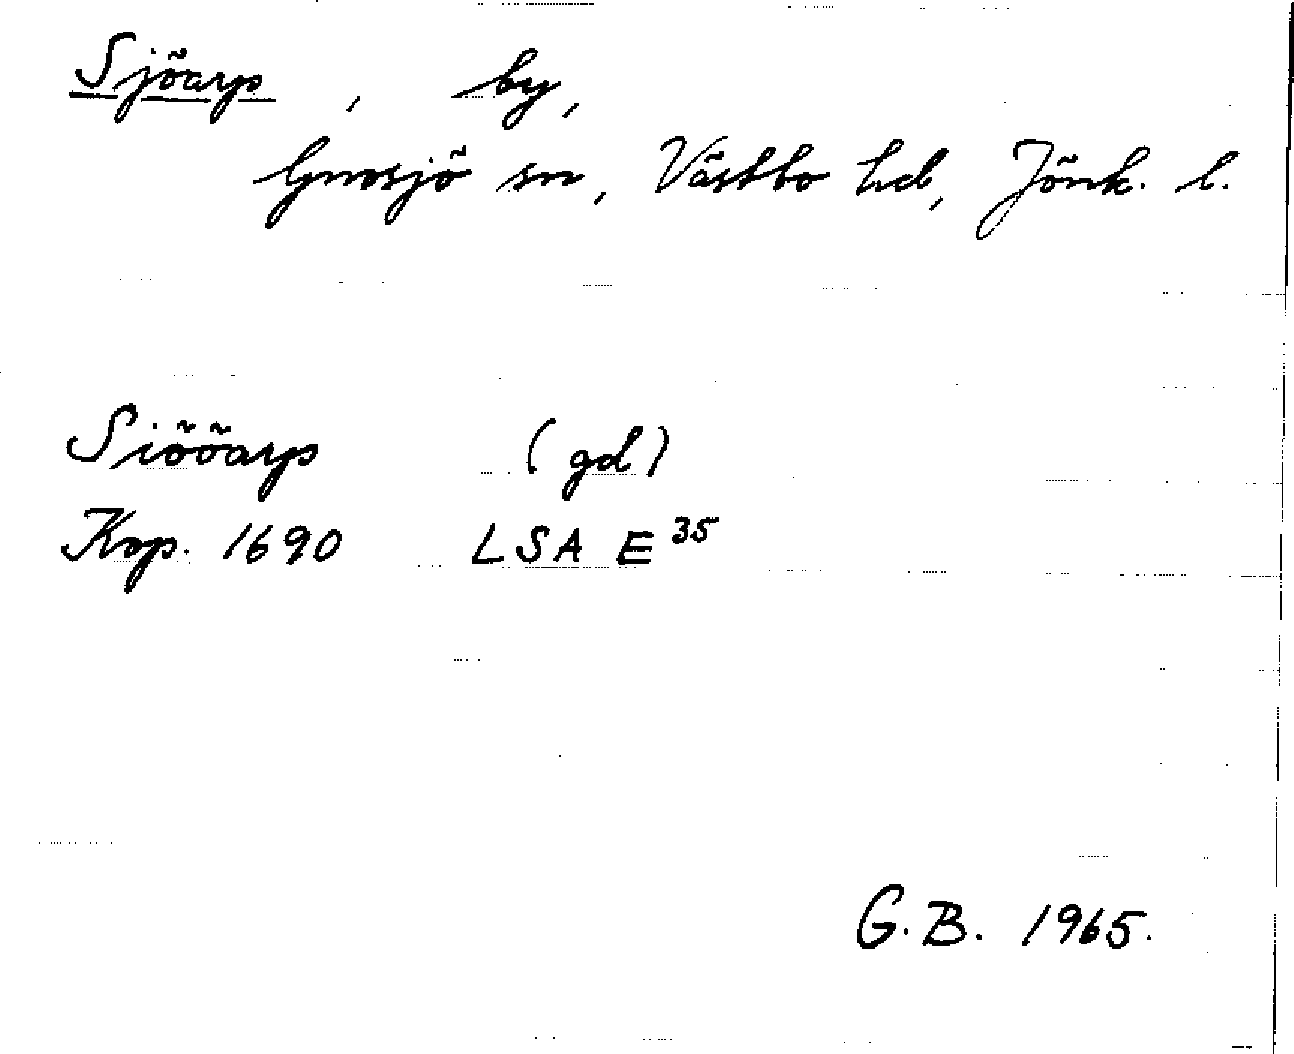 Sjöarp, by,
Gnosjö sn, Västbo hd, Jönk. l.
Siööarp (gd)
Kop. 1690 LSA E 35
G.B. 1965.